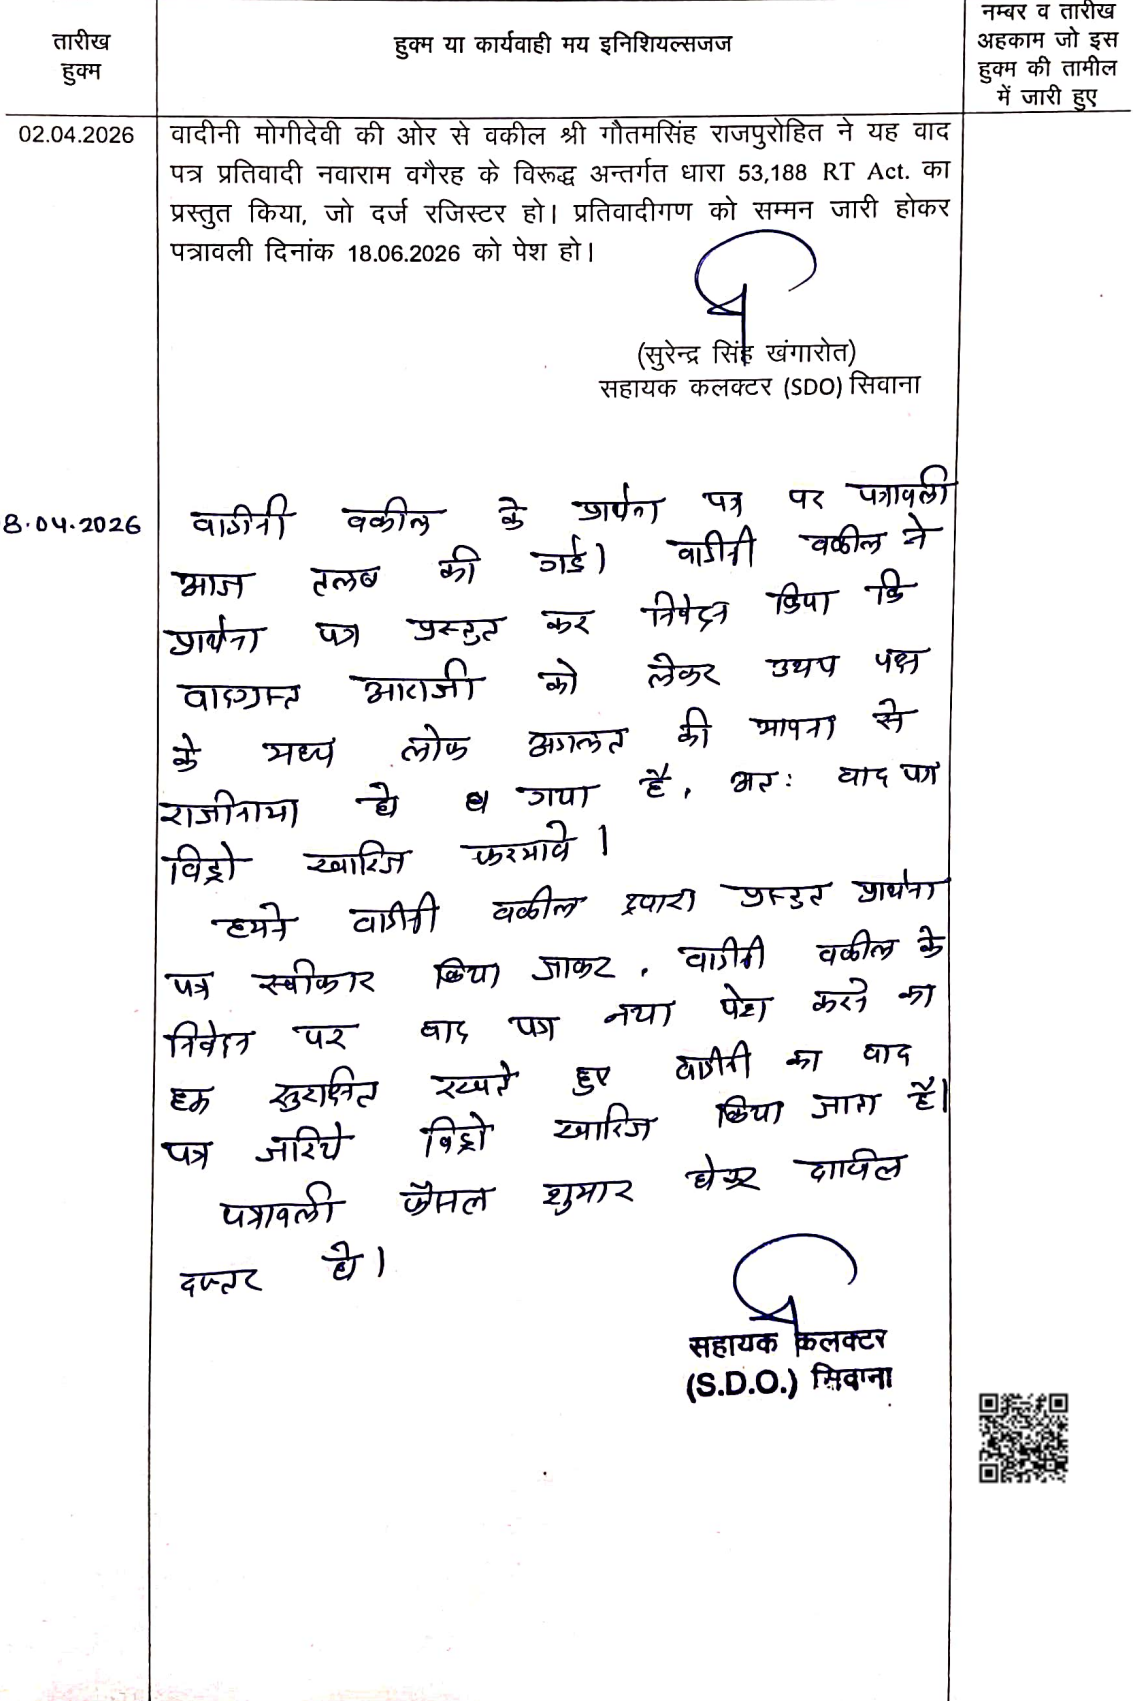 तारीख
हुक्म
हुक्म या कार्यवाही मय इनिशियल्सजज
नम्बर व तारीख
अहकाम जो इस
हुक्म की तामील
में जारी हुए
02.04.2026
वादीनी मोगीदेवी की ओर से वकील श्री गौतमसिंह राजपुरोहित ने यह वाद
पत्र प्रतिवादी नवाराम वगैरह के विरूद्ध अन्तर्गत धारा 53,188 RT Act. का
प्रस्तुत किया, जो दर्ज रजिस्टर हो। प्रतिवादीगण को सम्मन जारी होकर
पत्रावली दिनांक 18.06.2026 को पेश हो।
(सुरेन्द्र सिंह खंगारोत)
सहायक कलक्टर (SDO) सिवाना
8.04.2026
वादीनी वकील के प्रार्थना पत्र पर पत्रावली
आज तलब की गई। वादीनी वकील ने
प्रार्थना पत्र प्रस्तुत कर निवेदन किया कि
वादग्रस्त आराजी को लेकर उभय पक्ष
के मध्य लोक अदालत की भावना से
राजीनामा हो गया है, अतः वाद पत्र
विड्रो खारिज फरमावे।
हमने वादीनी वकील द्वारा प्रस्तुत प्रार्थना
पत्र स्वीकार किया जाकर, वादीनी वकील के
निवेदन पर वाद पत्र नया पेश करने का
हक सुरक्षित रखते हुए वादीनी का वाद
पत्र जरिये विड्रो खारिज किया जाता है।
पत्रावली फैसल शुमार होकर दाखिल
दफ्तर हो।
सहायक कलक्टर
(S.D.O.) सिवाना